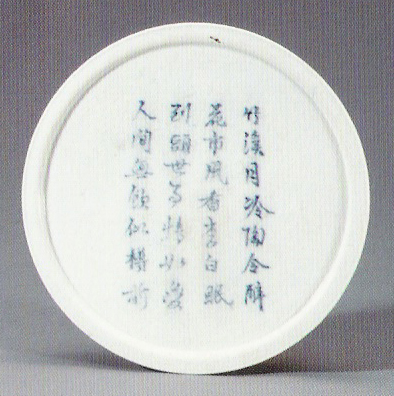 竹溪月冷陶令醉
花市風香李白眠
到頭世事情如夢
人間無飲似樽前